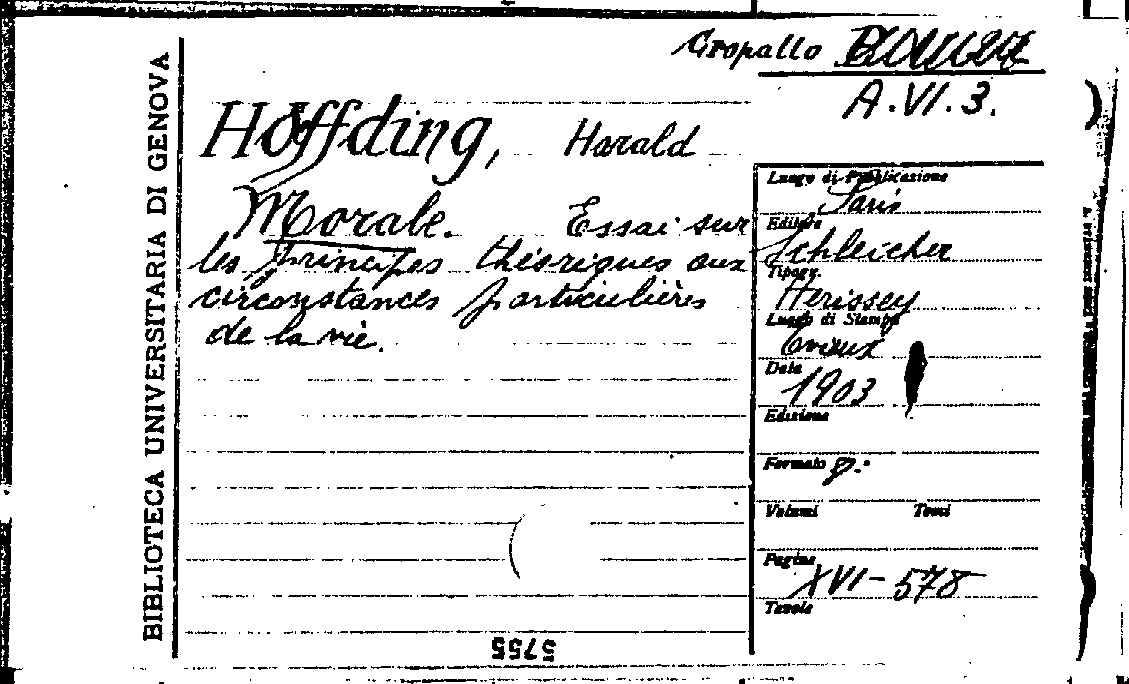 Gropallo
A.VI.3.
BIBLIOTECA UNIVERSITARIA DI GENOVA
Höffding, Harald
Morale. Essai sur
les principes théoriques aux
circonstances particulières
de la vie.
Luogo di Pubblicazione
Paris
Editore
Schleicher
Tipogr.
Herissey
Luogo di Stampa
Evreux
Data
1903
Edizione
Formato 8.°
Volumi Tomi
Pagine
XVI-578
Tavole
5755